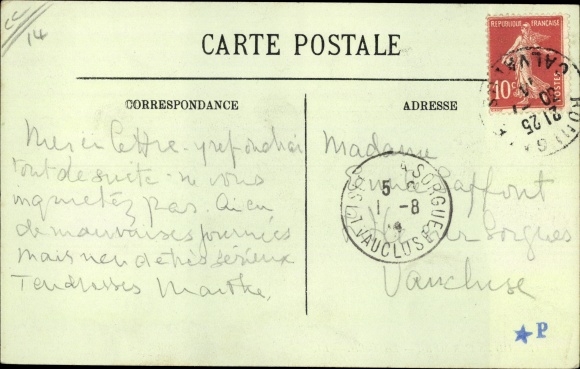 cc
14
CARTE POSTALE
REPUBLIQUE FRANÇAISE
10c POSTES
CALVA
21 25
30
CORRESPONDANCE
ADRESSE
Merci lettre - y répondrai
tout de suite - ne vous
inquiétez pas. Ai eu
de mauvaises journées
mais rien de très sérieux
Tendresses Marthe,
Madame
Laffont
sur Sorgues
Vaucluse
L'ISLE S SORGUE
5
1 - 8
VAUCLUSE
★P